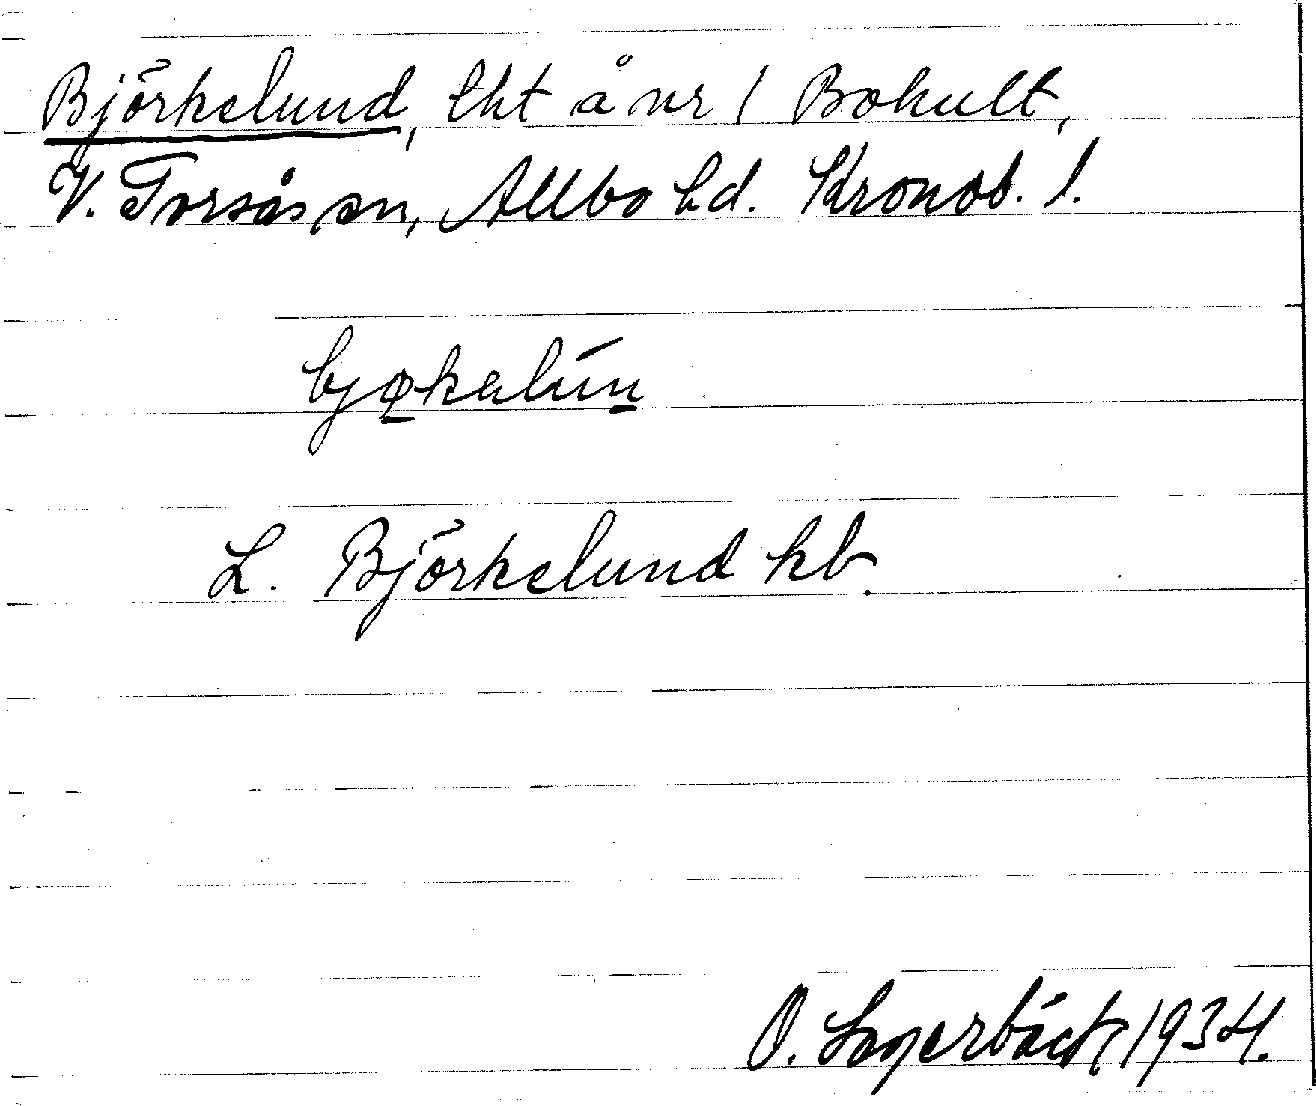 Björkelund, lht å nr 1 Bohult,
V. Torsås sn, Allbo hd. Kronob. l.
bjøkalún
L. Björkelund kb.
O. Lagerbäck 1934.